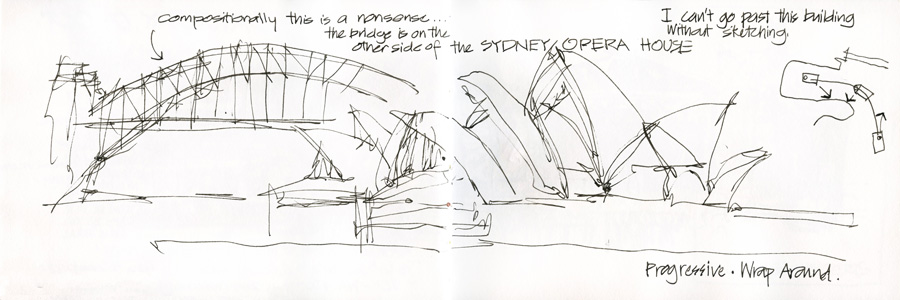 compositionally this is a nonsense...
the bridge is on the
other side of the SYDNEY OPERA HOUSE
I can't go past this building
without sketching.
Progressive . Wrap Around.